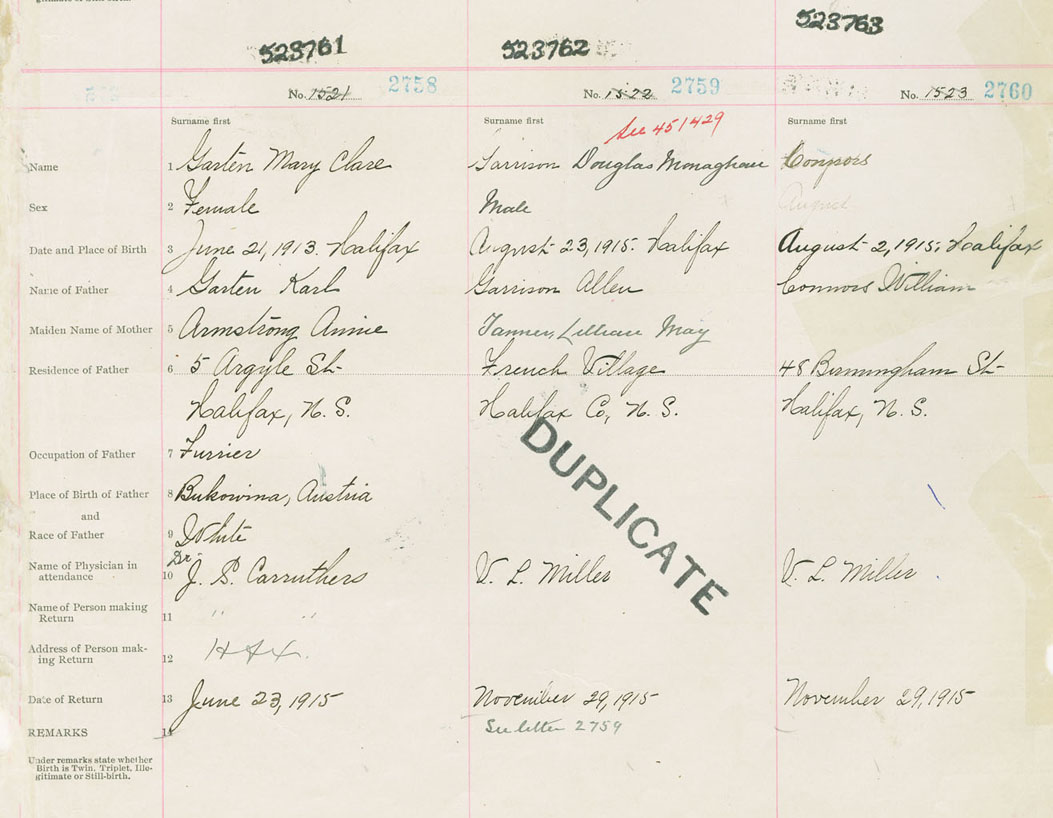 523761 523762 523763
No. 1521 2758 No. 1522 2759 No. 1523 2760
Surname first Surname first Surname first
See 451429
Name 1 Garten Mary Clare Garrison Douglas Monaghan Connors
Sex 2 Female Male August
Date and Place of Birth 3 June 21, 1913. Halifax August 23, 1915. Halifax August 2, 1915. Halifax
Name of Father 4 Garten Karl Garrison Allen Connors William
Maiden Name of Mother 5 Armstrong Annie Tanner, Lillian May
Residence of Father 6 5 Argyle St. French Village 48 Birmingham St.
Halifax, N. S. Halifax Co, N. S. Halifax, N. S.
DUPLICATE
Occupation of Father 7 Furrier
Place of Birth of Father 8 Bukowina, Austria
and
Race of Father 9 White
Dr.
Name of Physician in
attendance 10 J. S. Carruthers V. L. Miller V. L. Miller
Name of Person making
Return 11 " "
Address of Person mak-
ing Return 12 Hfx.
Date of Return 13 June 23, 1915 November 29, 1915 November 29, 1915
REMARKS 14 See letter 2759
Under remarks state whether
Birth is Twin, Triplet, Ille-
gitimate or Still-birth.